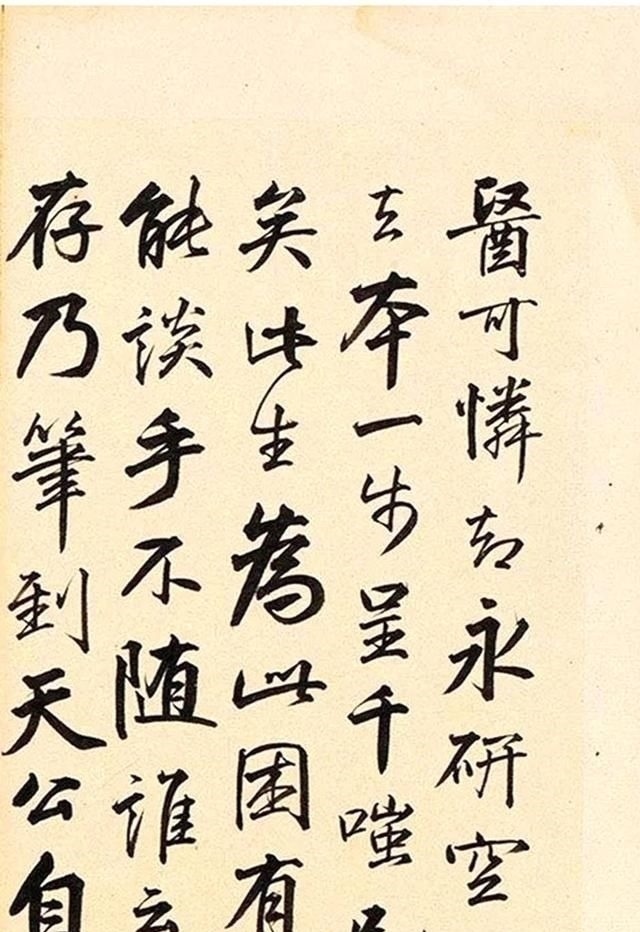 醫可憐智永研空
去本一步呈千嗤
矣此生為此困有
能談手不随誰云
存乃筆到天公自